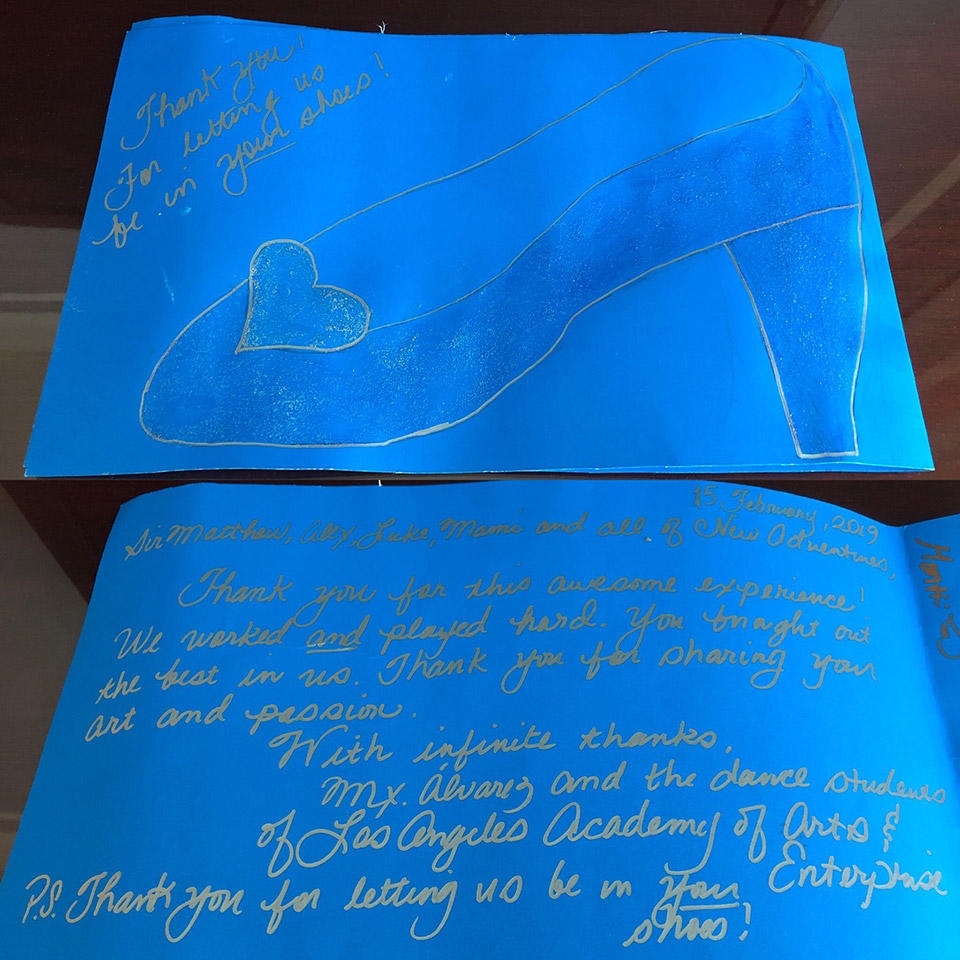 Thank you!
For letting us
be in your shoes!
15. February, 2019
Sir Matthew, Alex, Luke, Mami and all of New Adventures,
Thank you for this awesome experience!
We worked and played hard. You brought out
the best in us. Thank you for sharing your
art and passion.
With infinite thanks,
Mx. Álvarez and the dance students
of Los Angeles Academy of Arts &
Enterprise
P.S. Thank you for letting us be in your
shoes!